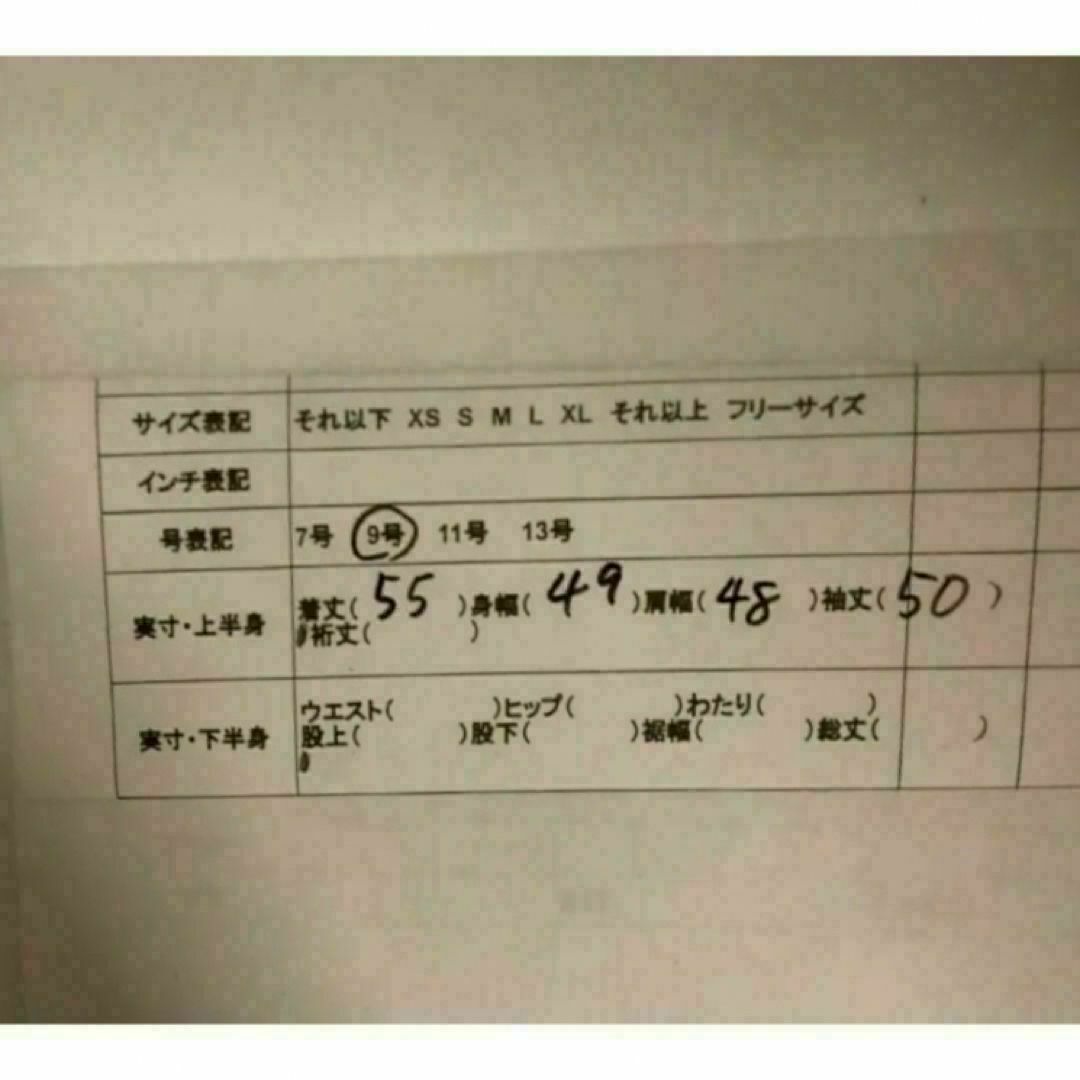 サイズ表記 それ以下 XS S M L XL それ以上 フリーサイズ
インチ表記
号表記 7号 9号 11号 13号
実寸・上半身 着丈( 55 )身幅( 49 )肩幅( 48 )袖丈( 50 )
裄丈( )
ウエスト( )ヒップ( )わたり( )
実寸・下半身 股上( )股下( )裾幅( )総丈( )